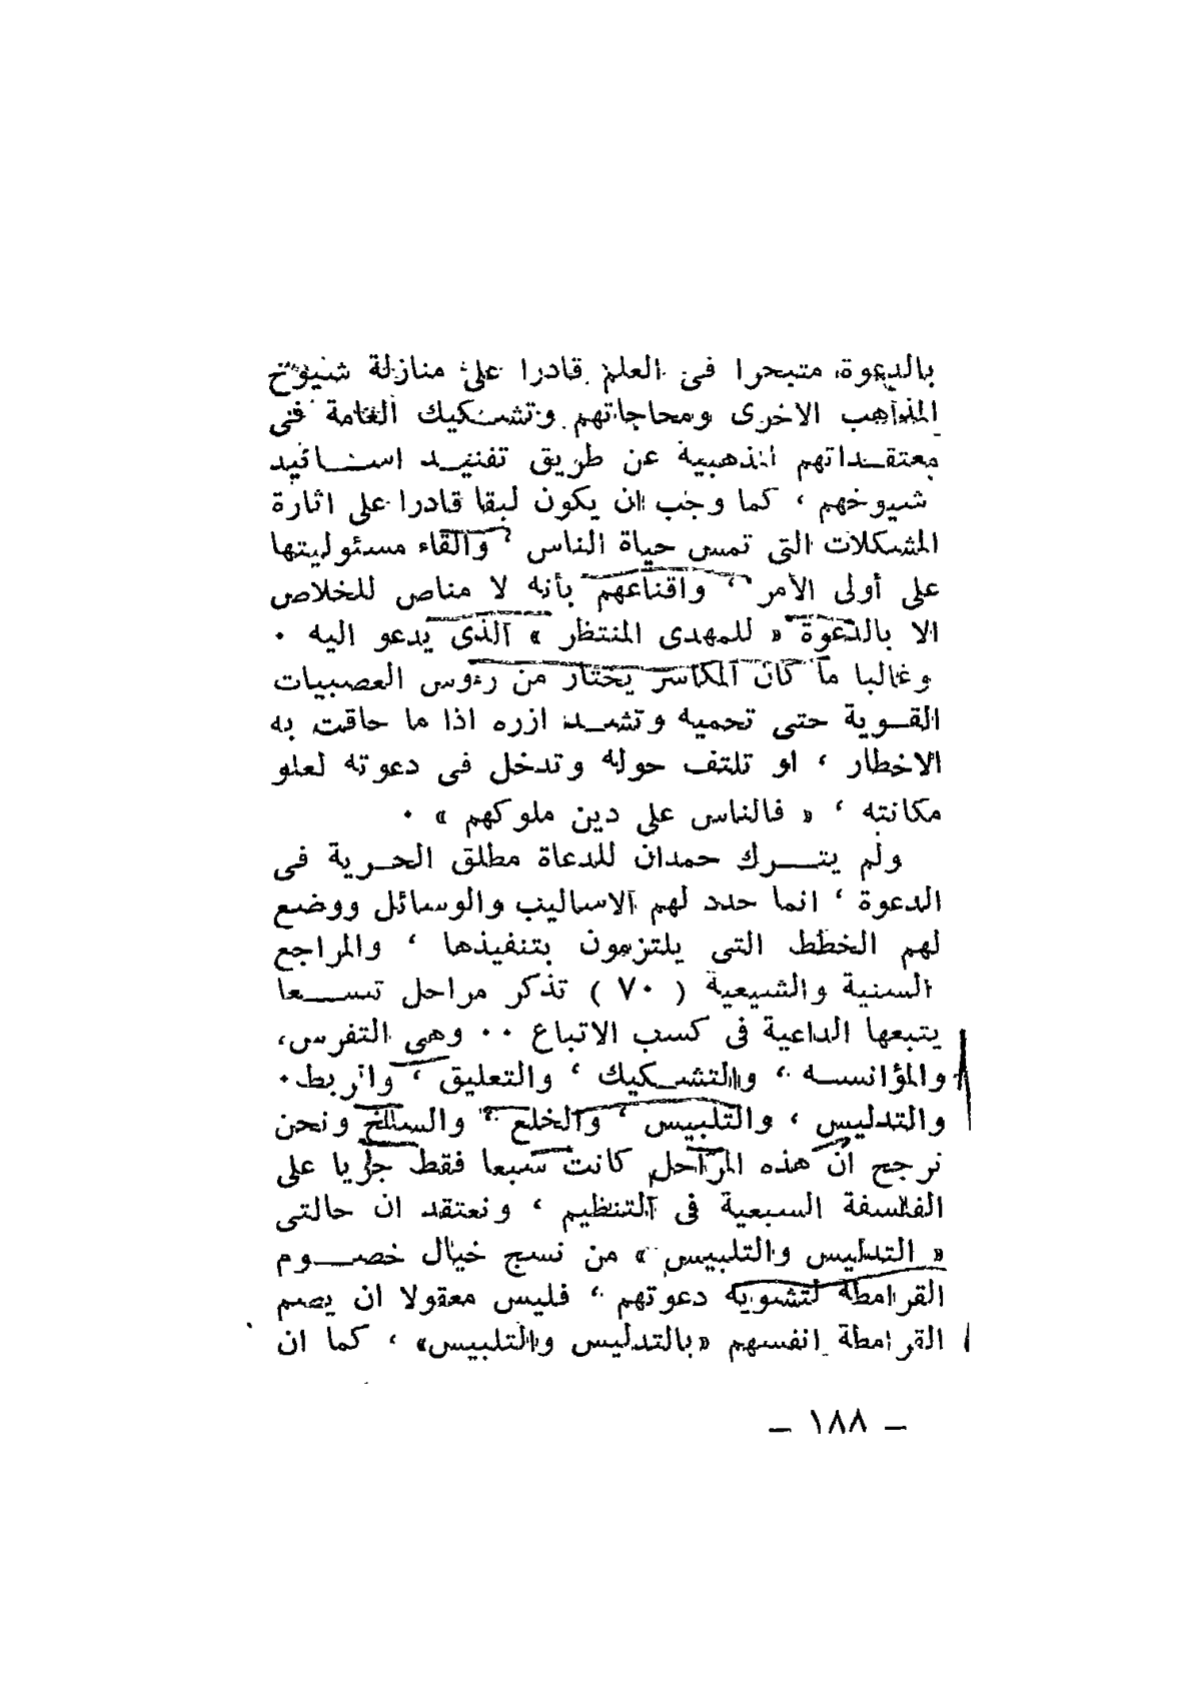 بالدعوة، متبحرا فى العلم قادرا على منازلة شيوخ
المذاهب الاخرى ومحاجاتهم وتشكيك العامة فى
معتقداتهم المذهبية عن طريق تفنيد اسانيد
شيوخهم ، كما وجب ان يكون لبقا قادرا على اثارة
المشكلات التى تمس حياة الناس ، والقاء مسئوليتها
على أولى الأمر ، واقناعهم بأنه لا مناص للخلاص
الا بالدعوة « للمهدى المنتظر » الذى يدعو اليه ٠
وغالبا ما كان المكاسر يختار من رءوس العصبيات
القوية حتى تحميه وتشد ازره اذا ما حاقت به
الاخطار ، او تلتف حوله وتدخل فى دعوته لعلو
مكانته ، « فالناس على دين ملوكهم » ٠
ولم يترك حمدان للدعاة مطلق الحرية فى
الدعوة ، انما حدد لهم الاساليب والوسائل ووضع
لهم الخطط التى يلتزمون بتنفيذها ، والمراجع
السنية والشيعية ( ٧٠ ) تذكر مراحل تسعا
يتبعها الداعية فى كسب الاتباع ٠٠ وهى التفرس،
والمؤانسه ، والتشكيك ، والتعليق ، والربط٠
والتدليس ، والتلبيس ، والخلع ، والسلخ ونحن
نرجح ان هذه المراحل كانت سبعا فقط جريا على
الفلسفة السبعية فى التنظيم ، ونعتقد ان حالتى
« التدليس والتلبيس » من نسج خيال خصوم
القرامطة لتشويه دعوتهم ، فليس معقولا ان يصم
القرامطة انفسهم «بالتدليس والتلبيس» ، كما ان
— ١٨٨ —